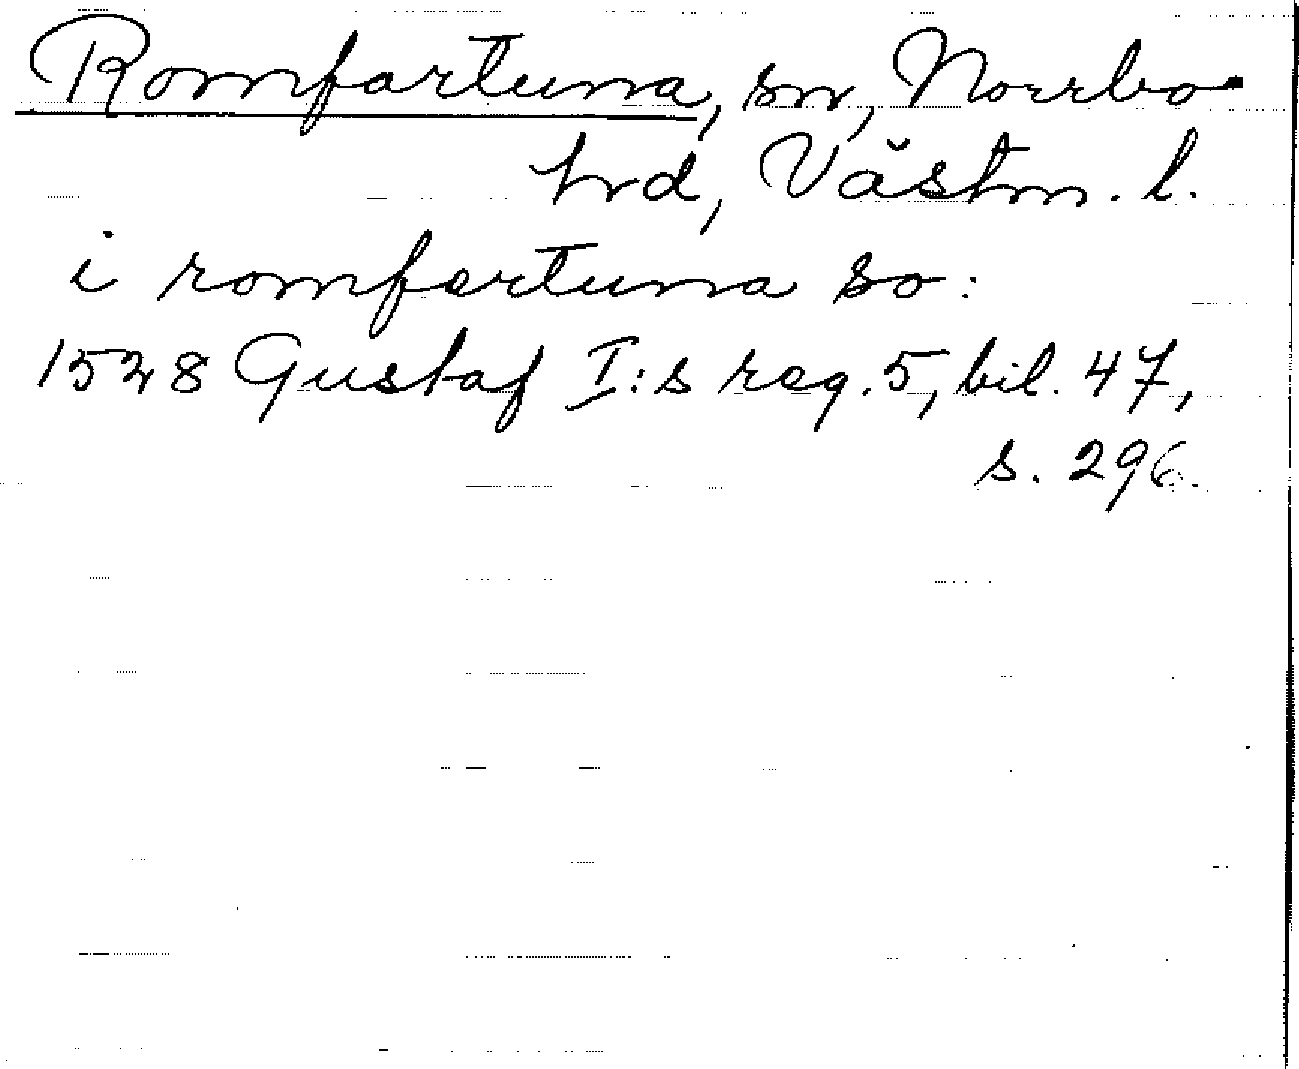 Romfartuna, sn, Norrbo
hrd, Västm. l.
i romfartuna so:
1528 Gustaf I:s reg. 5, bil. 47,
s. 296.